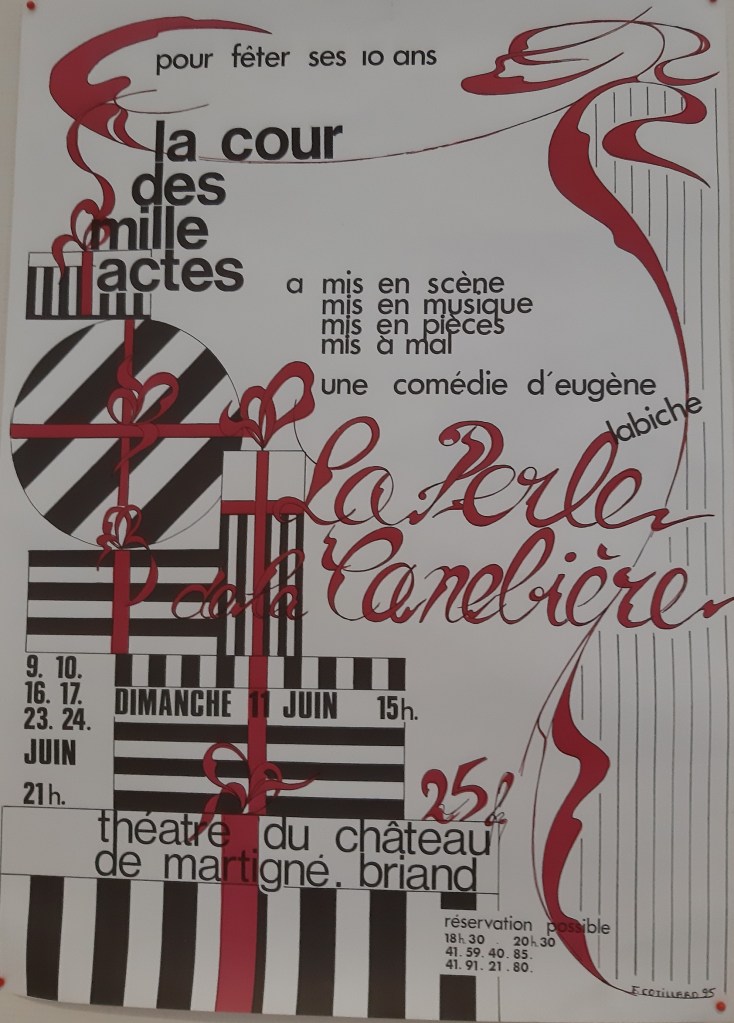 pour fêter ses 10 ans
la cour
des
mille
actes
a mis en scène
mis en musique
mis en pièces
mis à mal
une comédie d'eugène
labiche
La Perle
de la Canebière
9. 10.
16. 17.
23. 24.
JUIN
21h.
DIMANCHE 11 JUIN 15h.
25f
théatre du château
de martigné. briand
réservation possible
18h.30 . 20h.30
41. 59. 40. 85.
41. 91. 21. 80.
E.COTILLARD 95